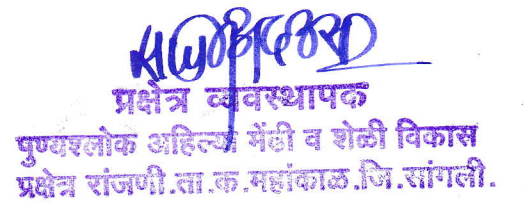 प्रक्षेत्र व्यवस्थापक
पुण्यश्लोक अहिल्या मेंढी व शेळी विकास
प्रक्षेत्र रांजणी.ता.क.महांकाळ.जि.सांगली.